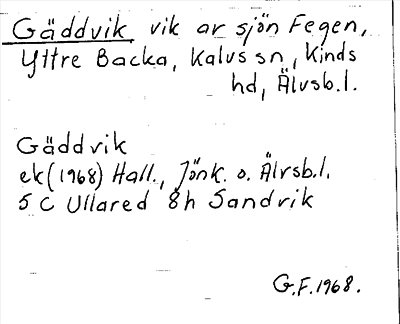 Gäddvik vik av sjön Fegen,
Yttre Backa, Kalvs sn, Kinds
hd, Älvsb.l.
Gäddvik
ek (1968) Hall., Jönk. o. Älvsb.l.
5 C Ullared 8h Sandvik
G.F. 1968.